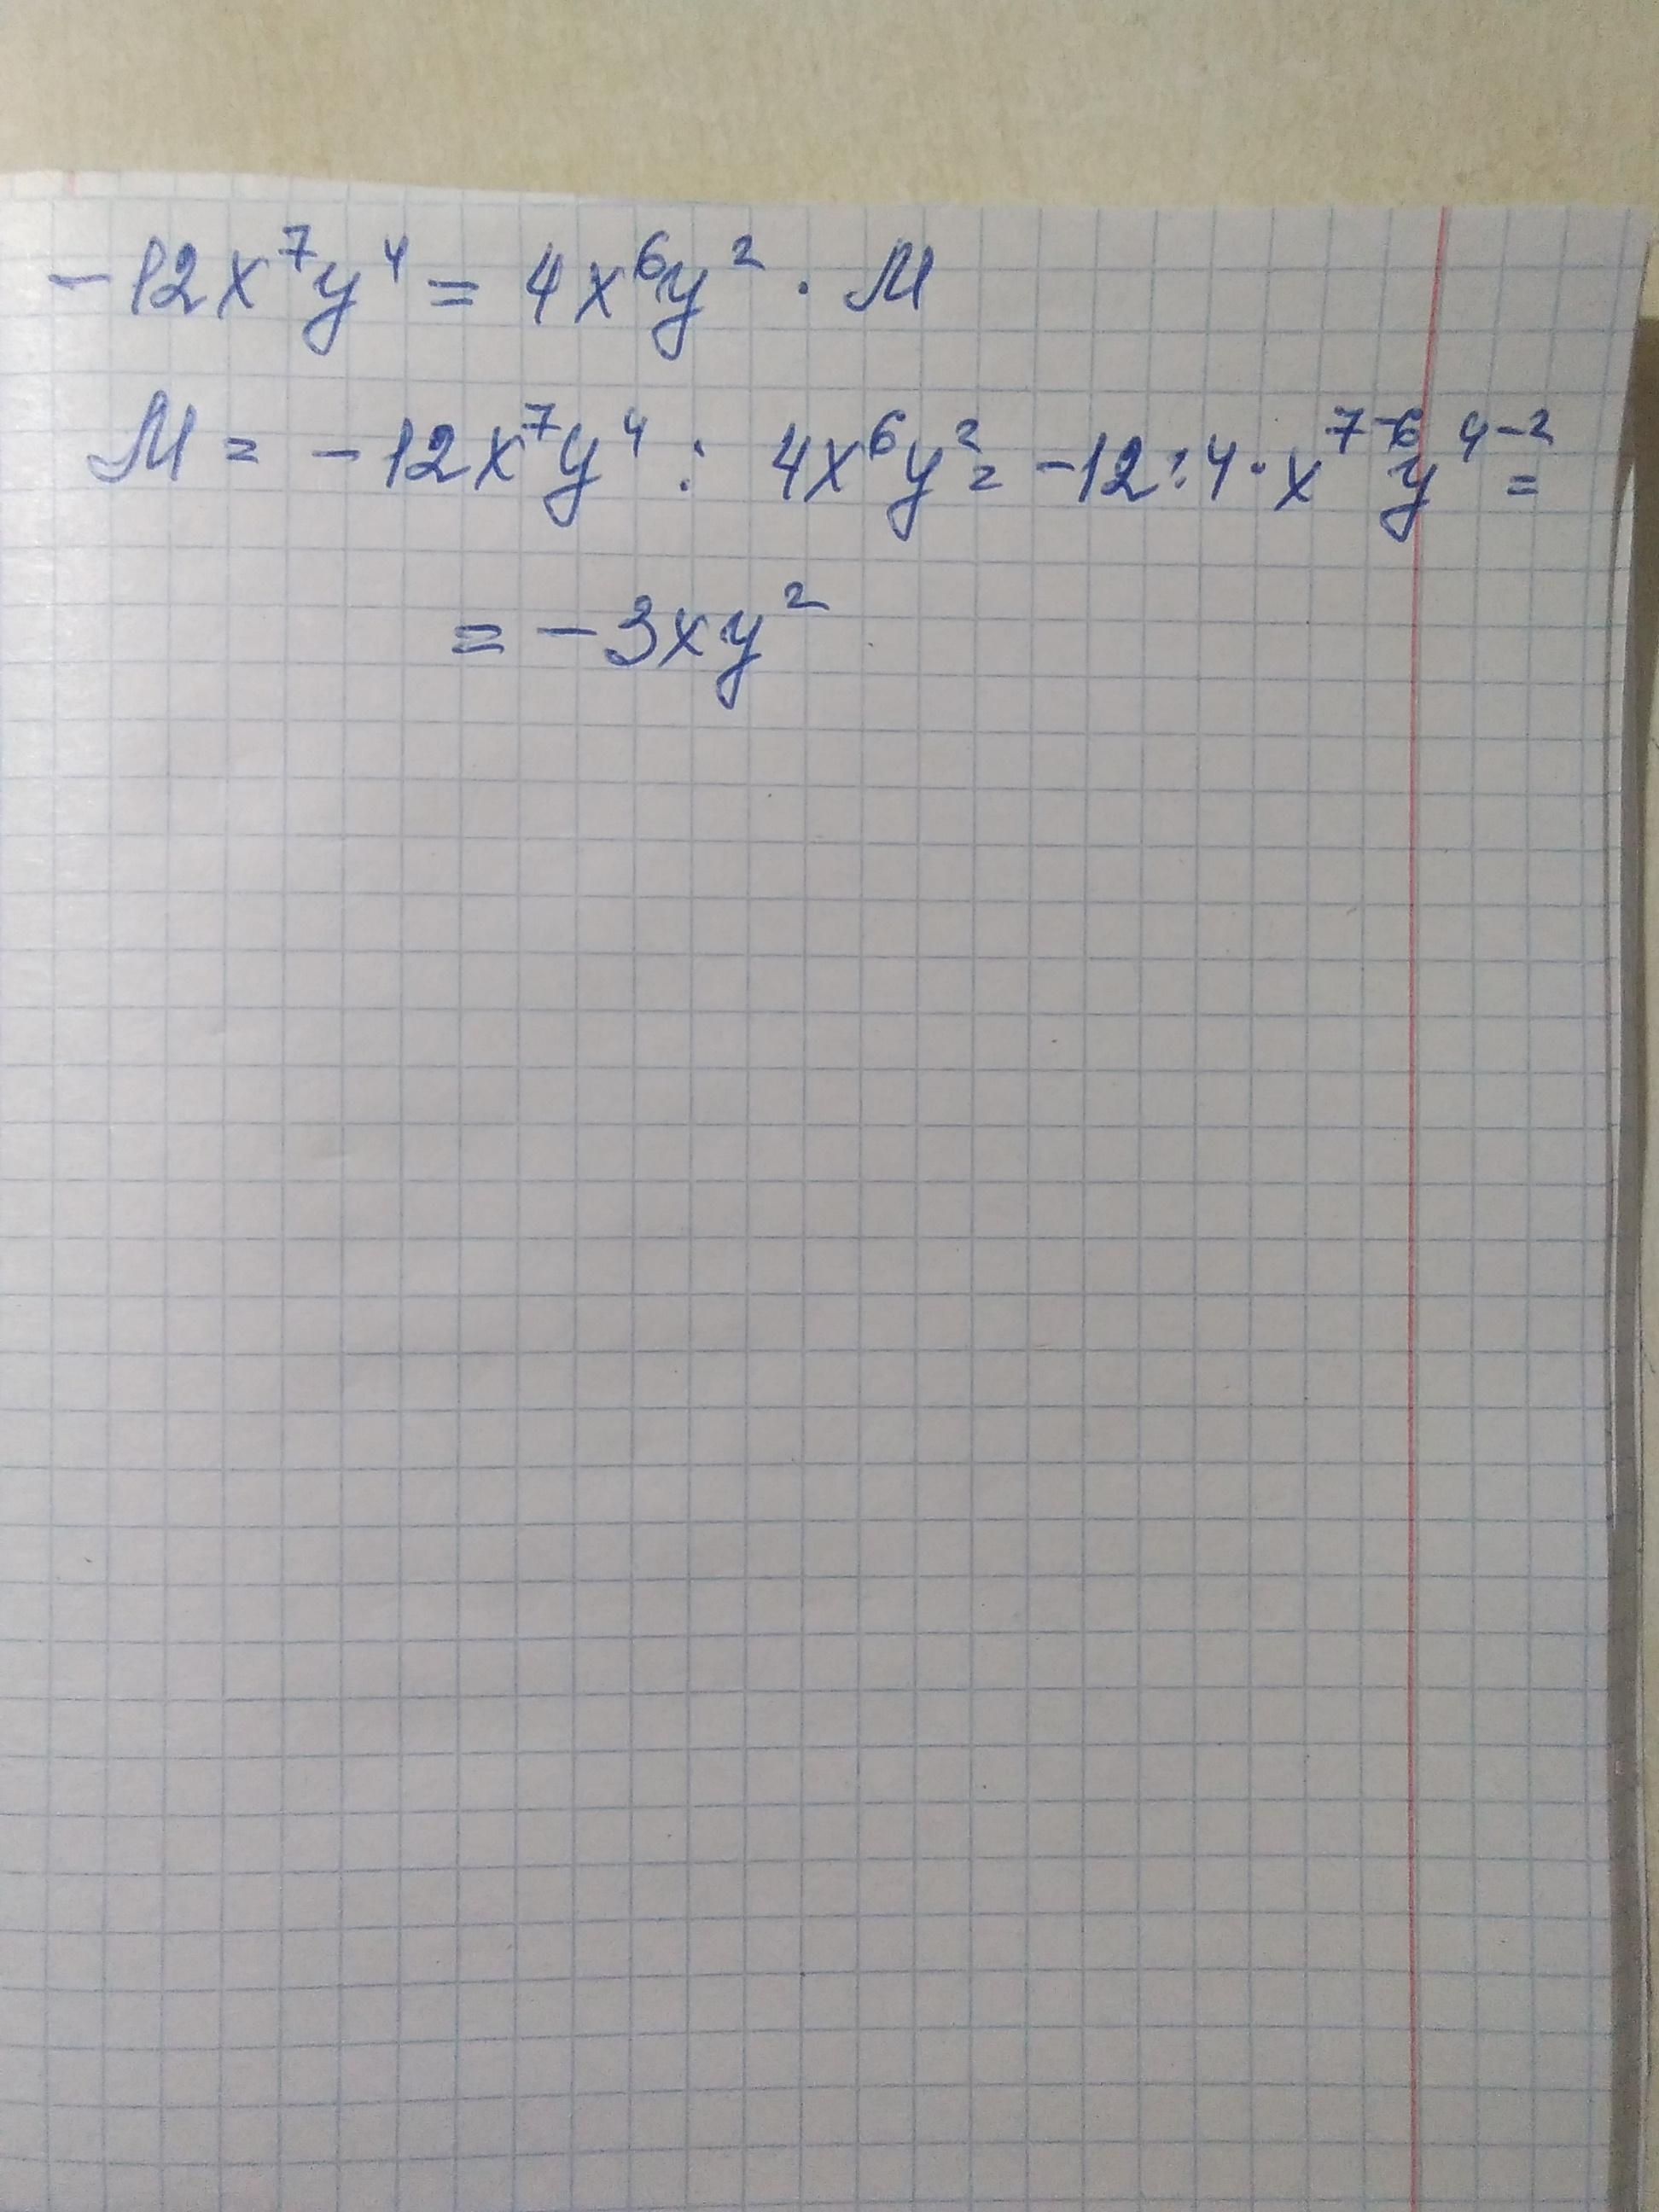 -12x⁷y⁴ = 4x⁶y² · М
М = -12x⁷y⁴ : 4x⁶y² = -12:4·x⁷⁻⁶y⁴⁻² =
= -3xy²